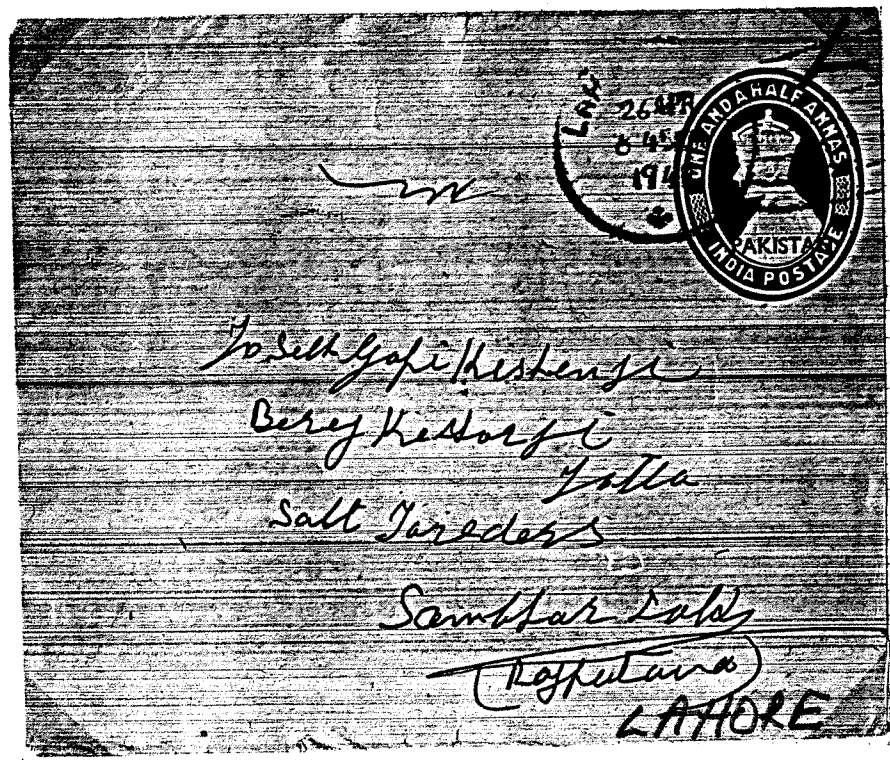 LAH
26 MR
6 45
194
ONE AND A HALF ANNAS
PAKISTAN
INDIA POSTAGE
To Seth Gopi Kishenji
Berej Kishorji
Salt
Sambhar Lake
(Rajputana)
LAHORE